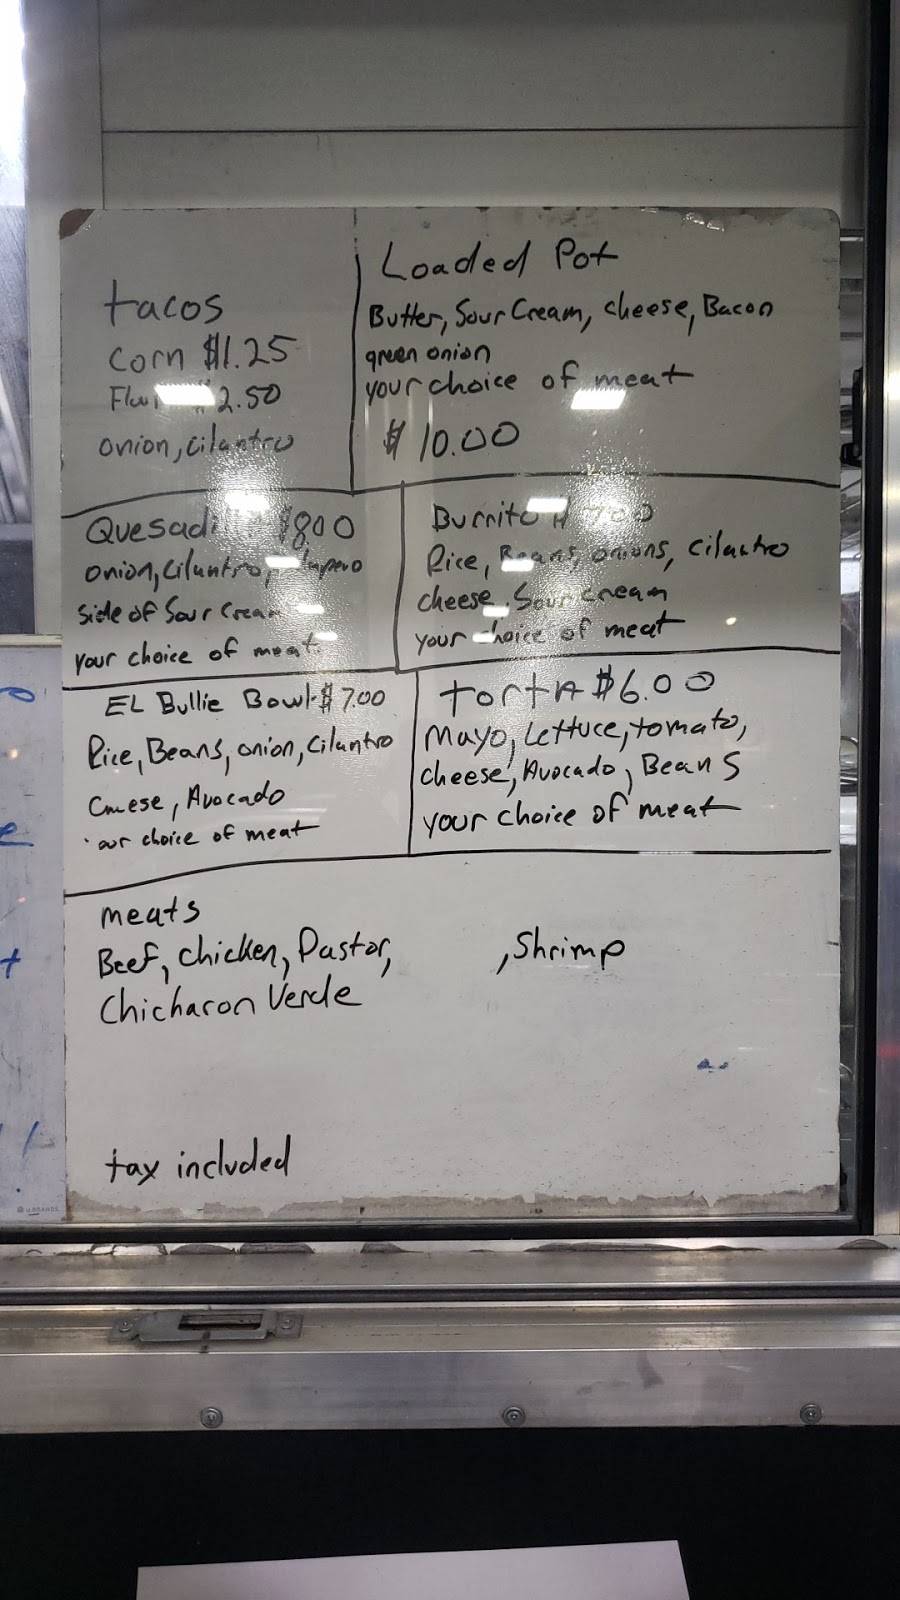 tacos
corn $1.25
$2.50
onion, cilantro
Loaded Pot
Butter, Sour Cream, cheese, Bacon
green onion
your choice of meat
$10.00
Quesadilla $8.00
onion, Cilantro,
Side of Sour Cream
your choice of meat
Burrito $7.00
Rice, Beans, onions, Cilantro
cheese, Sour Cream
your choice of meat
EL Bullie Bowl $7.00
Rice, Beans, onion, Cilantro
Cheese, Avocado
your choice of meat
tortA $6.00
Mayo, Lettuce, tomato,
cheese, Avocado, Beans
your choice of meat
meats
Beef, chicken, Pastor, , Shrimp
Chicharon Verde
tax included
U.BRANDS